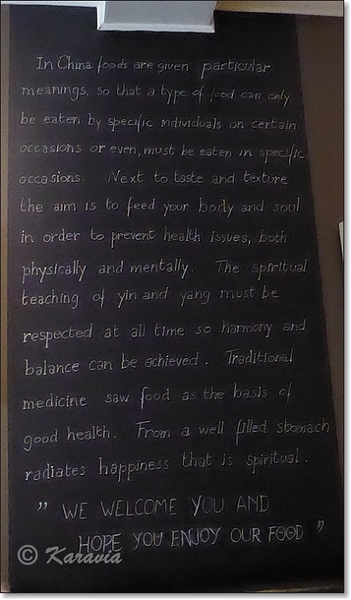 In China foods are given particular
meanings, so that a type of food can only
be eaten by specific individuals on certain
occasions or even, must be eaten in specific
occasions. Next to taste and texture
the aim is to feed your body and soul
in order to prevent health issues, both
physically and mentally. The spiritual
teaching of yin and yang must be
respected at all time so harmony and
balance can be achieved. Traditional
medicine saw food as the basis of
good health. From a well filled stomach
radiates happiness that is spiritual.
" WE WELCOME YOU AND
HOPE YOU ENJOY OUR FOOD "
© Karavia